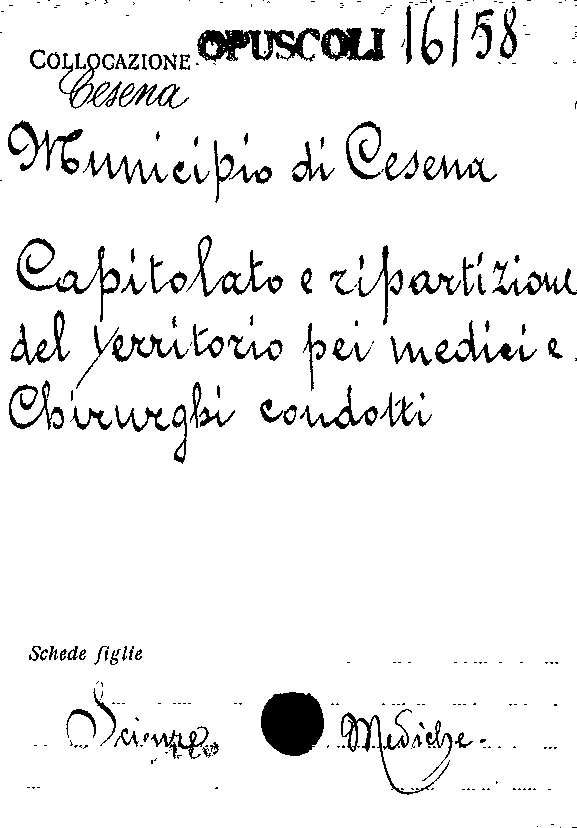 COLLOCAZIONE OPUSCOLI 16/58
Cesena
Municipio di Cesena
Capitolato e ripartizione
del territorio pei medici e
Chirurghi condotti
Schede figlie
Scienze Mediche.